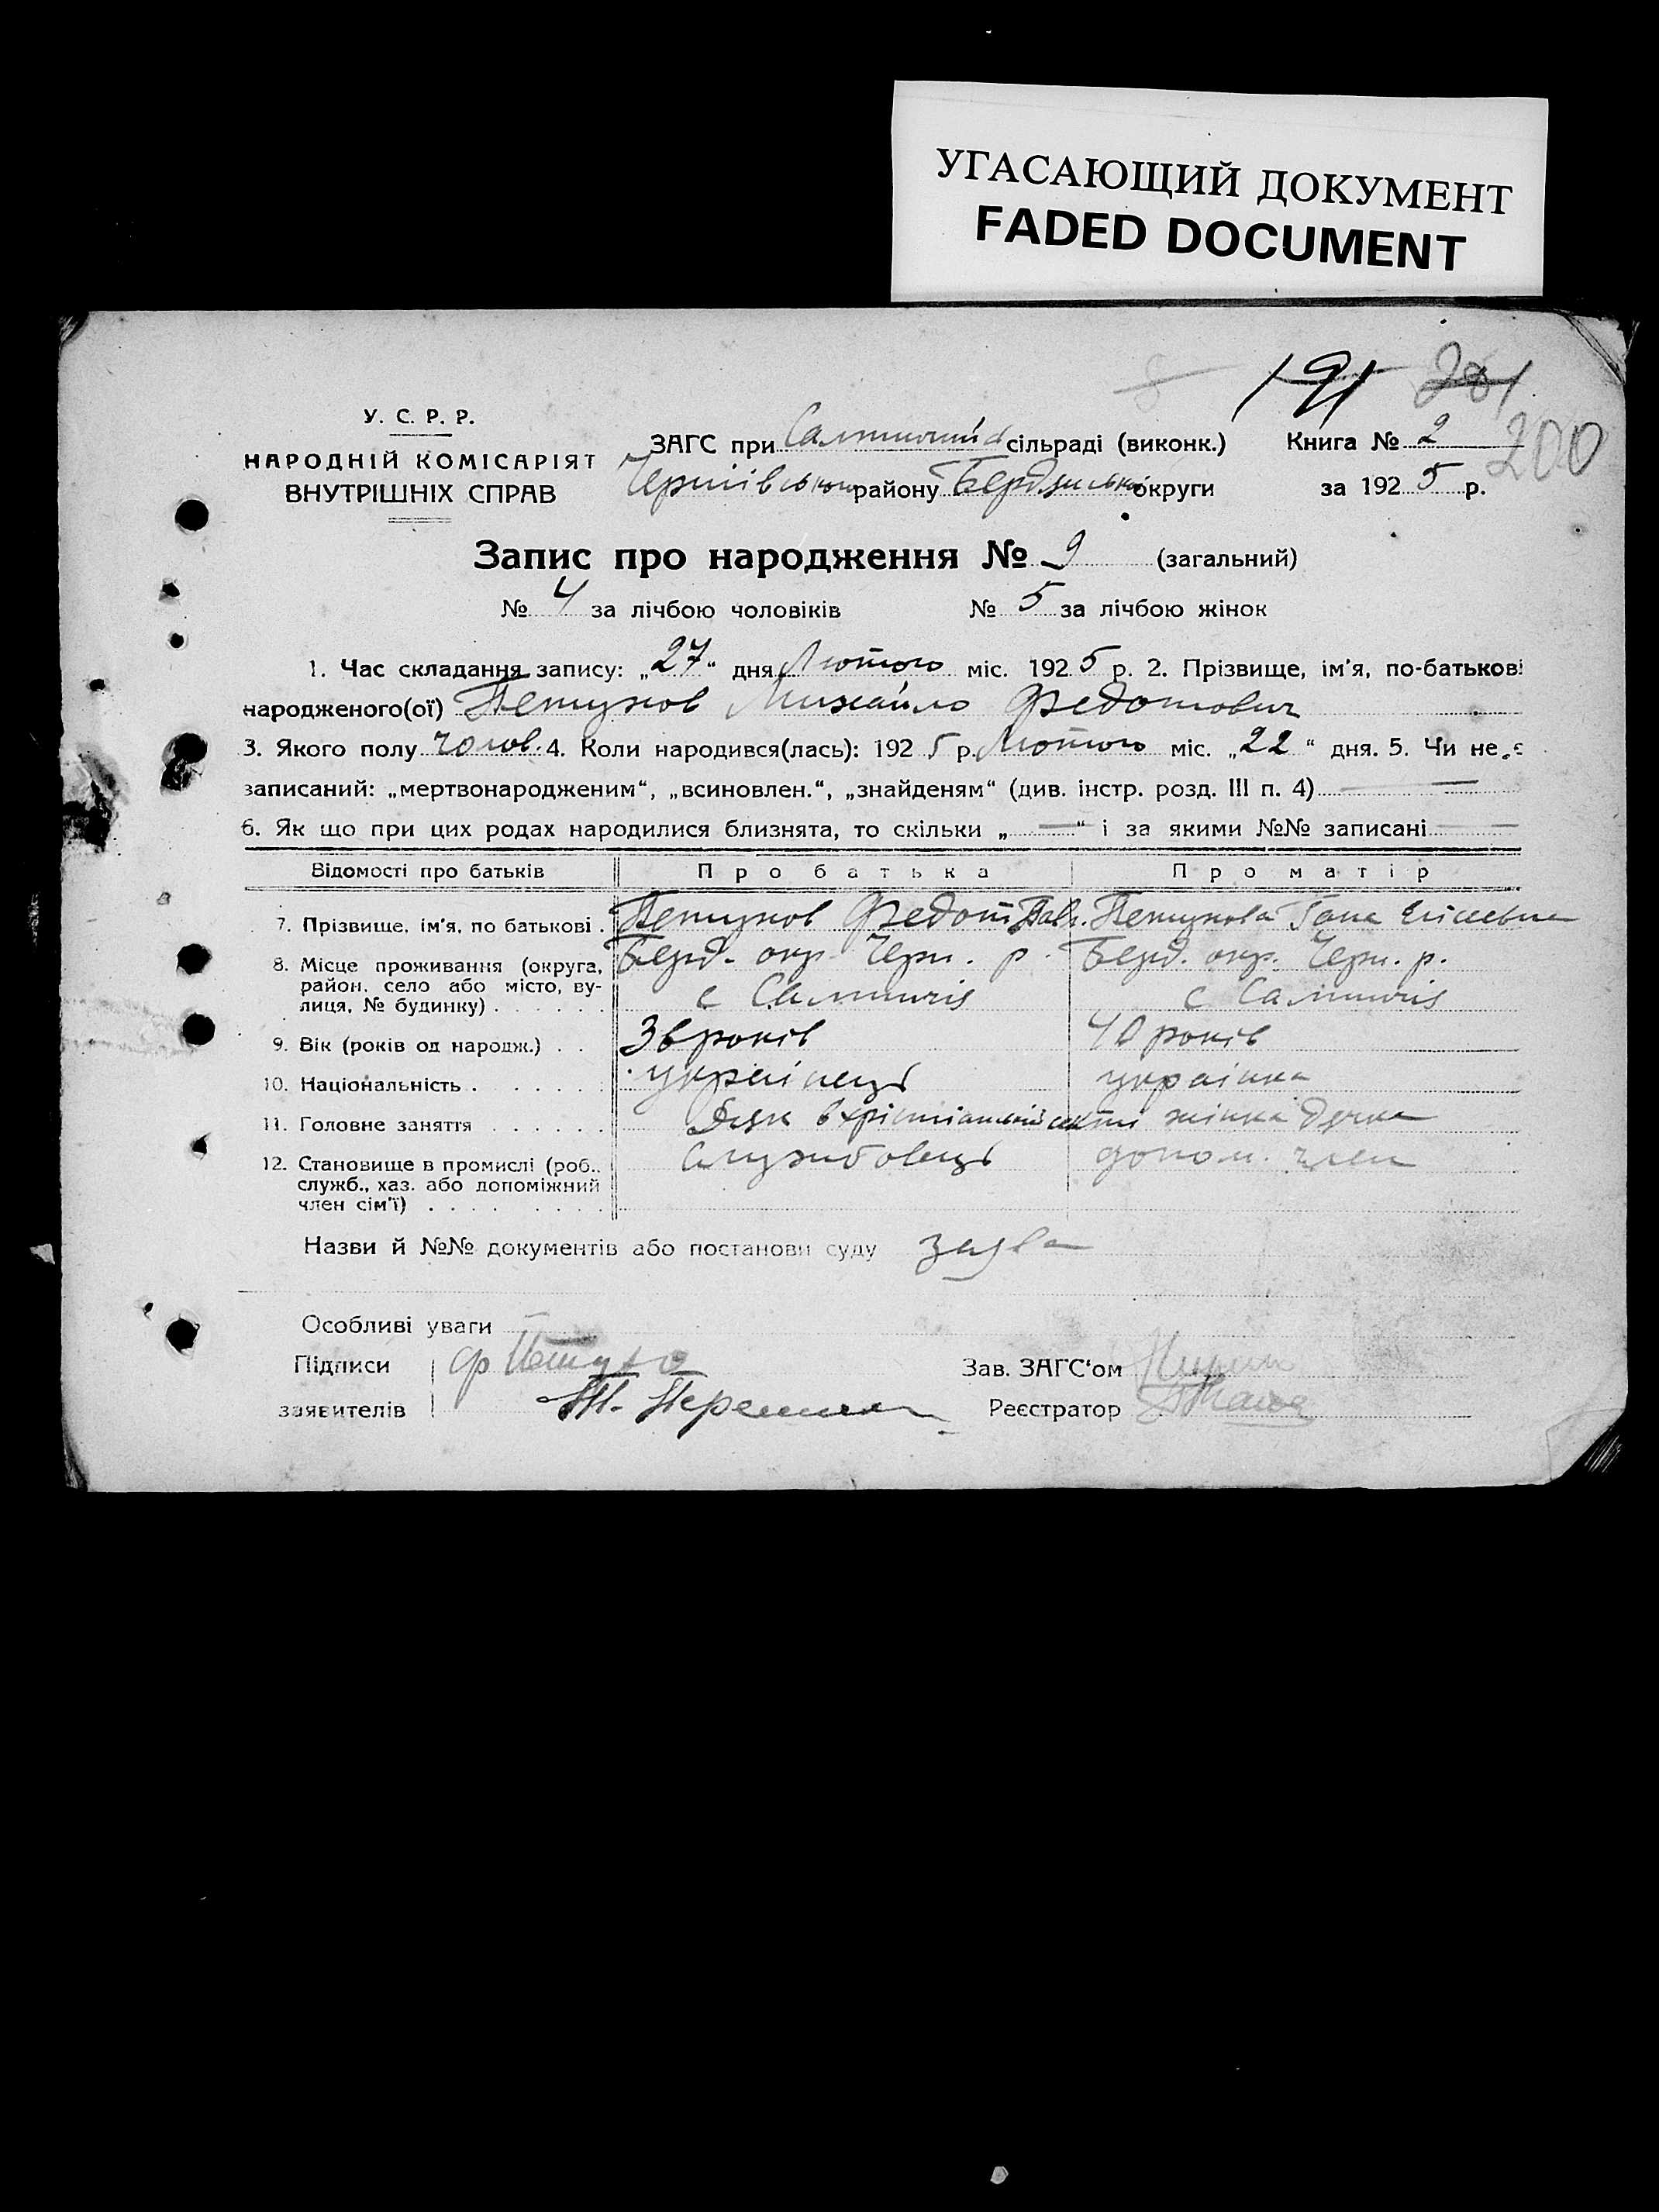 УГАСАЮЩИЙ ДОКУМЕНТ
FADED DOCUMENT
191 201
200
У. С. Р. Р.
НАРОДНІЙ КОМІСАРІЯТ
ВНУТРІШНІХ СПРАВ
ЗАГС при сільраді (виконк.)
району округи
Книга № 2
за 1925 р.
Запис про народження № 9 (загальний)
№ 4 за лічбою чоловіків № 5 за лічбою жінок
1. Час складання запису: „27“ дня Лютого міс. 1925 р. 2. Прізвище, ім'я, по-батькові
народженого(ої) Петухов Михайло Федотович
3. Якого полу чолов. 4. Коли народився(лась): 1925 р. Лютого міс. „22“ дня. 5. Чи не є
записаний: „мертвонародженим“, „всиновлен.“, „знайденям“ (див. інстр. розд. III п. 4) —
6. Як що при цих родах народилися близнята, то скільки „—“ і за якими №№ записані —
Відомості про батьків Про батька Про матір
7. Прізвище, ім'я, по батькові . Петухов Федот Павл. Петухова Гана Елісеевна
8. Місце проживання (округа, Берд. окр. Черн. р. Берд. окр. Черн. р.
район, село або місто, ву-
лиця, № будинку) . . . . . . с с
9. Вік (років од народж.) . . 36 років 40 років
10. Національність . . . . . . українець українка
11. Головне заняття . . . . . . Дяк в жінка дячка
12. Становище в промислі (роб., службовець допом. член
служб., хаз. або допоміжний
член сім'ї) . . . . . . . .
Назви й №№ документів або постанови суду заява
Особливі уваги
Підписи Ф Петухов
заявителів
Зав. ЗАГС'ом
Реєстратор